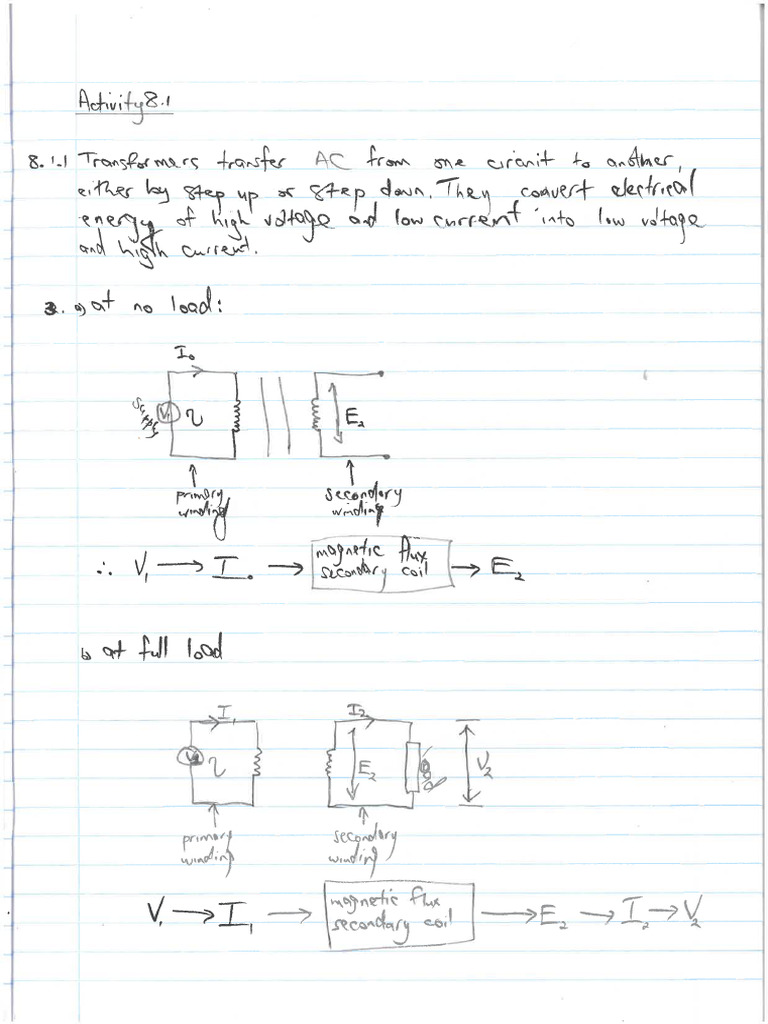 Activity 8.1
8.1.1 Transformers transfer AC from one circuit to another,
either by step up or step down. They convert electrical
energy of high voltage and low current into low voltage
and high current.
2. a) at no load:
I₀
Supply V₁
E₂
primary
winding
secondary
winding
∴ V₁ → I₀ → magnetic flux
secondary coil → E₂
b) at full load
I₁ I₂
V₁ E₂ load V₂
primary
winding
secondary
winding
V₁ → I₁ → magnetic flux
secondary coil → E₂ → I₂ → V₂